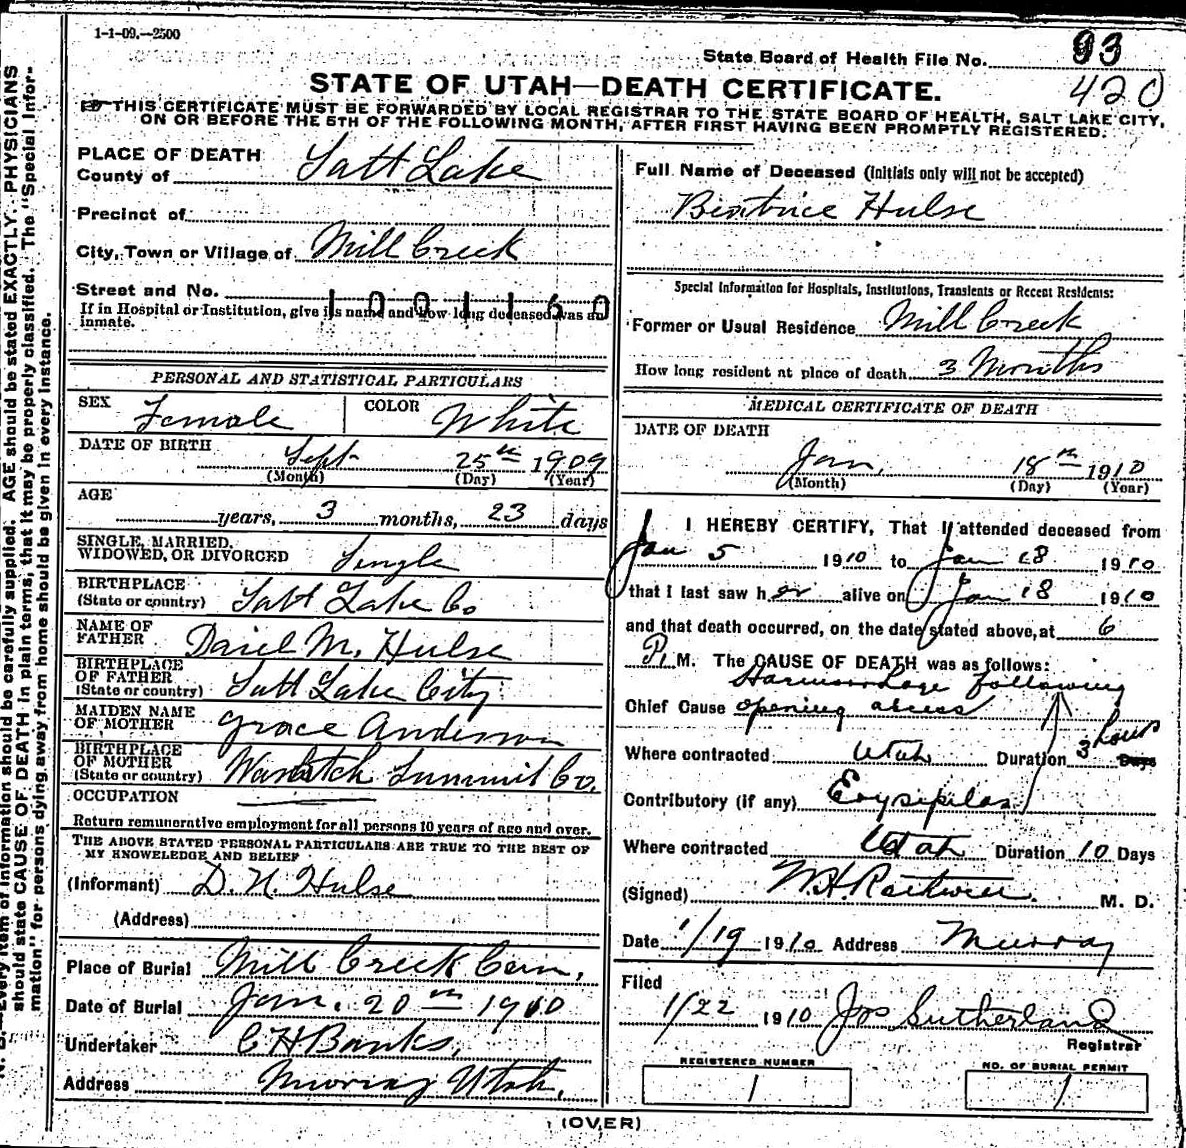 1-1-09.—2500
State Board of Health File No. 93
420
STATE OF UTAH—DEATH CERTIFICATE.
THIS CERTIFICATE MUST BE FORWARDED BY LOCAL REGISTRAR TO THE STATE BOARD OF HEALTH, SALT LAKE CITY,
ON OR BEFORE THE 5TH OF THE FOLLOWING MONTH, AFTER FIRST HAVING BEEN PROMPTLY REGISTERED.
PLACE OF DEATH
County of Salt Lake
Precinct of
City, Town or Village of Mill Creek
Street and No.
1001160
If in Hospital or Institution, give its name and how long deceased was an
inmate.
PERSONAL AND STATISTICAL PARTICULARS
SEX Female COLOR White
DATE OF BIRTH Sept 25th 1909
(Month) (Day) (Year)
AGE
years, 3 months, 23 days
SINGLE, MARRIED,
WIDOWED, OR DIVORCED Single
BIRTHPLACE
(State or country) Salt Lake Co
NAME OF
FATHER Daniel M. Hulse
BIRTHPLACE
OF FATHER
(State or country) Salt Lake City
MAIDEN NAME
OF MOTHER Grace Anderson
BIRTHPLACE
OF MOTHER
(State or country) Wasatch Summit Co.
OCCUPATION
Return remunerative employment for all persons 10 years of age and over.
THE ABOVE STATED PERSONAL PARTICULARS ARE TRUE TO THE BEST OF
MY KNOWLEDGE AND BELIEF
(Informant) D. N. Hulse
(Address)
Place of Burial Mill Creek Cem,
Date of Burial Jan. 20th 1910
Undertaker C H Banks,
Address Murray Utah,
Full Name of Deceased (Initials only will not be accepted)
Beatrice Hulse
Special Information for Hospitals, Institutions, Transients or Recent Residents:
Former or Usual Residence Mill Creek
How long resident at place of death 3 Months
MEDICAL CERTIFICATE OF DEATH
DATE OF DEATH
Jan. 18th 1910
(Month) (Day) (Year)
I HEREBY CERTIFY, That I attended deceased from
Jan 5 1910 to Jan 18 1910
that I last saw her alive on Jan 18 1910
and that death occurred, on the date stated above, at 6
P. M. The CAUSE OF DEATH was as follows:
following
Chief Cause opening
Where contracted Utah Duration 3 hours Days
Contributory (if any) Erysipelas
Where contracted Utah Duration 10 Days
(Signed) M. D.
Date 1/19 1910 Address Murray
Filed
1/22 1910 Jos Sutherland
Registrar
REGISTERED NUMBER
1
NO. OF BURIAL PERMIT
1
(OVER)
N. B.—Every item of information should be carefully supplied. AGE should be stated EXACTLY. PHYSICIANS
should state CAUSE OF DEATH in plain terms, that it may be properly classified. The "Special Infor-
mation" for persons dying away from home should be given in every instance.